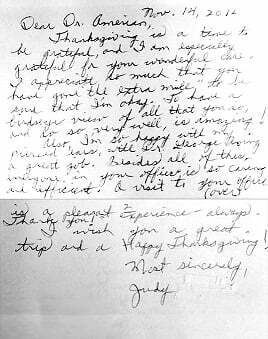 Nov. 14, 2012
Dear Dr. American,
Thanksgiving is a time to
be grateful, and I am especially
grateful for your wonderful care.
I appreciate so much that you
have gone the extra mile to be
sure that I'm okay. To have a
birdseye view of all that you do,
and do so very well, is amazing!
Also, I'm so happy with my
pierced ears, with Dr. George doing
a great job. Besides all of this,
everyone in your office is so caring
and efficient. A visit to your office
(over)
is a pleasant experience - always.
Thank you!
I wish you a great
trip and a Happy Thanksgiving!
Most sincerely,
Judy